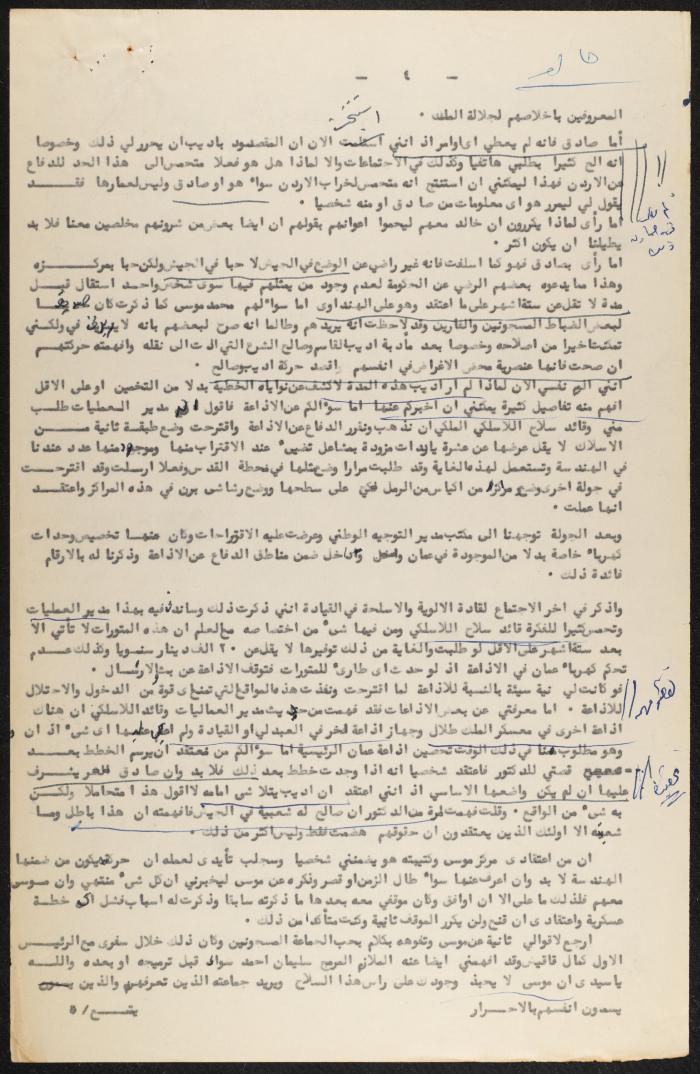 - ٤ -
المعروفين باخلاصهم لجلالة الملك .
أما صادق فانه لم يعطي اى اوامر اذ انني استنتجت الان ان المقصود باديب ان يحرر لي ذلك وخصوصا
انه الح كثيرا بطلبي هاتفيا وكذلك في الاجتماعات والا لماذا هل هو فعلا متحمس الى هذا الحد للدفاع
عن الاردن فهذا ليمكنني ان استنتج انه متحمس لخراب الاردن سواء هو او صادق وليس لعمارها فقد
يقول لي ليبرر هو اى معلومات من صادق او منه شخصيا .
اما رأى لماذا يكررون ان خالد معهم ليحموا اعوانهم بقولهم ان ايضا بعض من شرونهم مخلصين معنا فلا بد
يطيلنا ان يكون اكثر .
اما رأى بصادق فهو كما اسلفت فانه غير راضي عن الوضع في الجيش لا حبا في الجيش ولكن حبا بمركزه
وهذا ما يدعوه بعدم الرضي عن الحكومة لعدم وجود من يمثلهم فيها سوى شخص واحد استقال قبل
مدة لا تقل عن ستة اشهر على ما اعتقد وهو على الهنداوى اما سؤالهم محمد موسى كما ذكرت كان صديقا
لبعض الضباط المسجونين والفارين وقد لاحظت انه يريدهم وطالما انه صرح لبعضهم بانه لا في ولكنني
تمكنت اخيرا من اصلاحه وخصوصا بعد مادبة اديب القاسم وصالح الشرع التي ادت الى نقله وافهمته حركتهم
ان صحت فانها عنصرية محض الاغراض في انفسهم واقصد حركة اديب وصالح .
انني الوم نفسي الان لماذا لم ار اديب هذه المدة لاكشف عن نواياه الخطية بدلا من التخمين او على الاقل
افهم منه تفاصيل كثيرة يمكنني ان اخبركم عنها اما سوءالكم عن الاذاعة فاقول ان مدير العمليات طلب
مني وقائد سلاح اللاسلكي الملكي ان نذهب ونقرر الدفاع عن الاذاعة واقترحت وضع طبقة ثانية من
الاسلاك لا يقل عرضها عن عشرة ياردات مزودة بمشاعل تضيء عند الاقتراب منها وموجود منها عدد عندنا
في الهندسة وتستعمل لهذه الغاية وقد طلبت مرارا وضع مثلها في محطة القدس وفعلا ارسلت وقد اقترحت
في جولة اخرى وضع من اكياس من الرمل على سطحها ووضع رشاشي برن في هذه المراكز واعتقد
انها عملت .
وبعد الجولة توجهنا الى مكتب مدير التوجيه الوطني وعرضت عليه الاقتراحات وكان منها تخصيص وحدات
كهرباء خاصة بدلا من الموجودة في عمان وادخل ضمن مناطق الدفاع عن الاذاعة وذكرنا له بالارقام
فائدة ذلك .
واذكر في اخر الاجتماع لقادة الالوية والاسلحة في القيادة انني ذكرت ذلك وساندني فيه بهذا مدير العمليات
وتحمس كثيرا للفكرة قائد سلاح اللاسلكي ومن فيها شيء من اختصاصه مع العلم ان هذه المتورات لا تأتي الا
بعد ستة اشهر على الاقل لو طلبت والغاية من ذلك توفيرها لا يقل عن ٢٠ الف دينار سنويا وكذلك عدم
تحكم كهرباء عمان في الاذاعة اذ لو حدث اى طارىء للمتورات فتوقف الاذاعة عن بث الارسال .
فو كانت لي نية سيئة بالنسبة للاذاعة لما اقترحت ونفذت هذه المواقع التي تمنع اى قوة من الدخول والاحتلال
للاذاعة . اما معرفتي عن بعض الاذاعات فقد فهمت من حديث مدير العماليات وقائد اللاسلكي ان هناك
اذاعة اخرى في معسكر الملك طلال وجهاز اذاعة اخر في العبدلي او القيادة ولم اطلع عليها اى شيء اذ ان
وهو مطلوب منا في ذلك الوقت تحصين اذاعة عمان الرئيسية اما سوءالكم من فمعتقد ان يرسم الخطط بعد
قصتي للدكتور فاعتقد شخصيا انه اذا وجدت خطط بعد ذلك فلا بد وان صادق الحر يشرف
عليها ان لم يكن واضعها الاساسي اذ انني اعتقد ان اديب يتلاشى امامه لا اقول هذا متحاملا ولكن
به شيء من الواقع . وقلت فهمت لمرة من الدكتور ان صالح له شعبية في الجيش فافهمته ان هذا باطل وما
شعبيته الا اولئك الذين يعتقدون ان حقوقهم هضمت فقط وليس اكثر من ذلك .
ان من اعتقادى مركز موسى وكتيبته هو يضمنني شخصيا وسجلب تأيدى لعمله ان حركته يكون من ضمنها
الهندسة لا بد وان اعرف عنها سواء طال الزمن او قصر ونكره عن موسى ليخبرني ان كل شيء منتهي وان موسى
معهم فلذلك ما على الا ان اوافق وكان موقفي معه بعدها ما ذكرته سابقا وذكرت له اسباب فشل اى خطة
عسكرية واعتقادى ان قنع ولن يكرر الموقف ثانية وكنت متأكدا من ذلك .
ارجع لاقوالي ثانية عن موسى وتفوهه بكلام بحب الجماعة المسجونين وكان ذلك خلال سفرى مع الرئيس
الاول كمال قاقيش وقد افهمني ايضا عنه الملازم المرمج سليمان احمد سواء قبل ترميجه او بعده والله
ياسيدى ان موسى لا يحبذ وجودك على راس هذا السلاح ويريد جماعته الذين تعرفهم والذين
يسمون انفسهم بالاحرار
يتبع / ٥